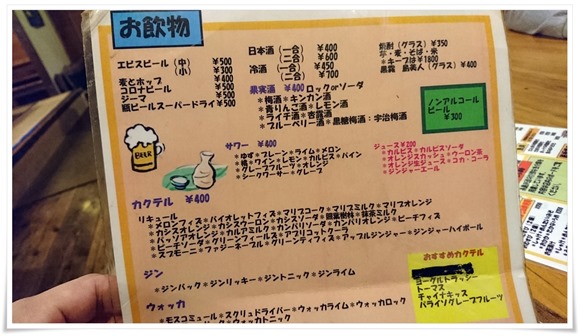 お飲物
エビスビール(中) ¥500
(小) ¥300
麦とホップ ¥400
コロナビール ¥500
ジーマ ¥500
瓶ビールスーパードライ ¥500
日本酒(一合) ¥400
(二合) ¥600
冷酒(一合) ¥450
(二合) ¥700
果実酒 ¥400 ロックorソーダ
*梅酒*キンカン酒
*青りんご酒*レモン酒
*ライチ酒*杏露酒
*ブルーベリー酒*黒糖梅酒*宇治梅酒
焼酎(グラス)¥350
芋・麦・そば・米
*キープは¥1800
黒霧 島美人(グラス)¥400
ノンアルコール
ビール
¥300
BEER
サワー ¥400
*ゆず*プレーン*ライム*メロン
*橘*ワイン*レモン*カルピス*パイン
*グレープフルーツ*オレンジ
*シークワーサー*グレープ
ジュース¥200
*カルピス*カルピスソーダ
*オレンジスカッシュ*ウーロン茶
*オレンジ生ジュース*コカ・コーラ
*ジンジャーエール
カクテル ¥400
リキュール
*メロンフィズ*バイオレットフィズ*マリブコーク*マリブミルク*マリブオレンジ
*カシスオレンジ*カシスウーロン*カシスソーダ*照葉樹林*抹茶ミルク
*パッソアオレンジ*カルアミルク*カンパリソーダ*カンパリオレンジ*ピーチフィズ
*ピーチソーダ*グリーンフィールズ*アプリコットクーラ
*スプモーニ*ファジーネーブル*グリーンティフィズ*アップルジンジャー*ジンジャーハイボール
ジン
*ジンバック*ジンリッキー*ジントニック*ジンライム
ウォッカ
*モスコミュール*スクリュドライバー*ウォッカライム*ウォッカロック
*ウォッカトニック
おすすめカクテル
ヨーグルトラッシー
トーマス
チャイナキッス
パライソグレープフルーツ